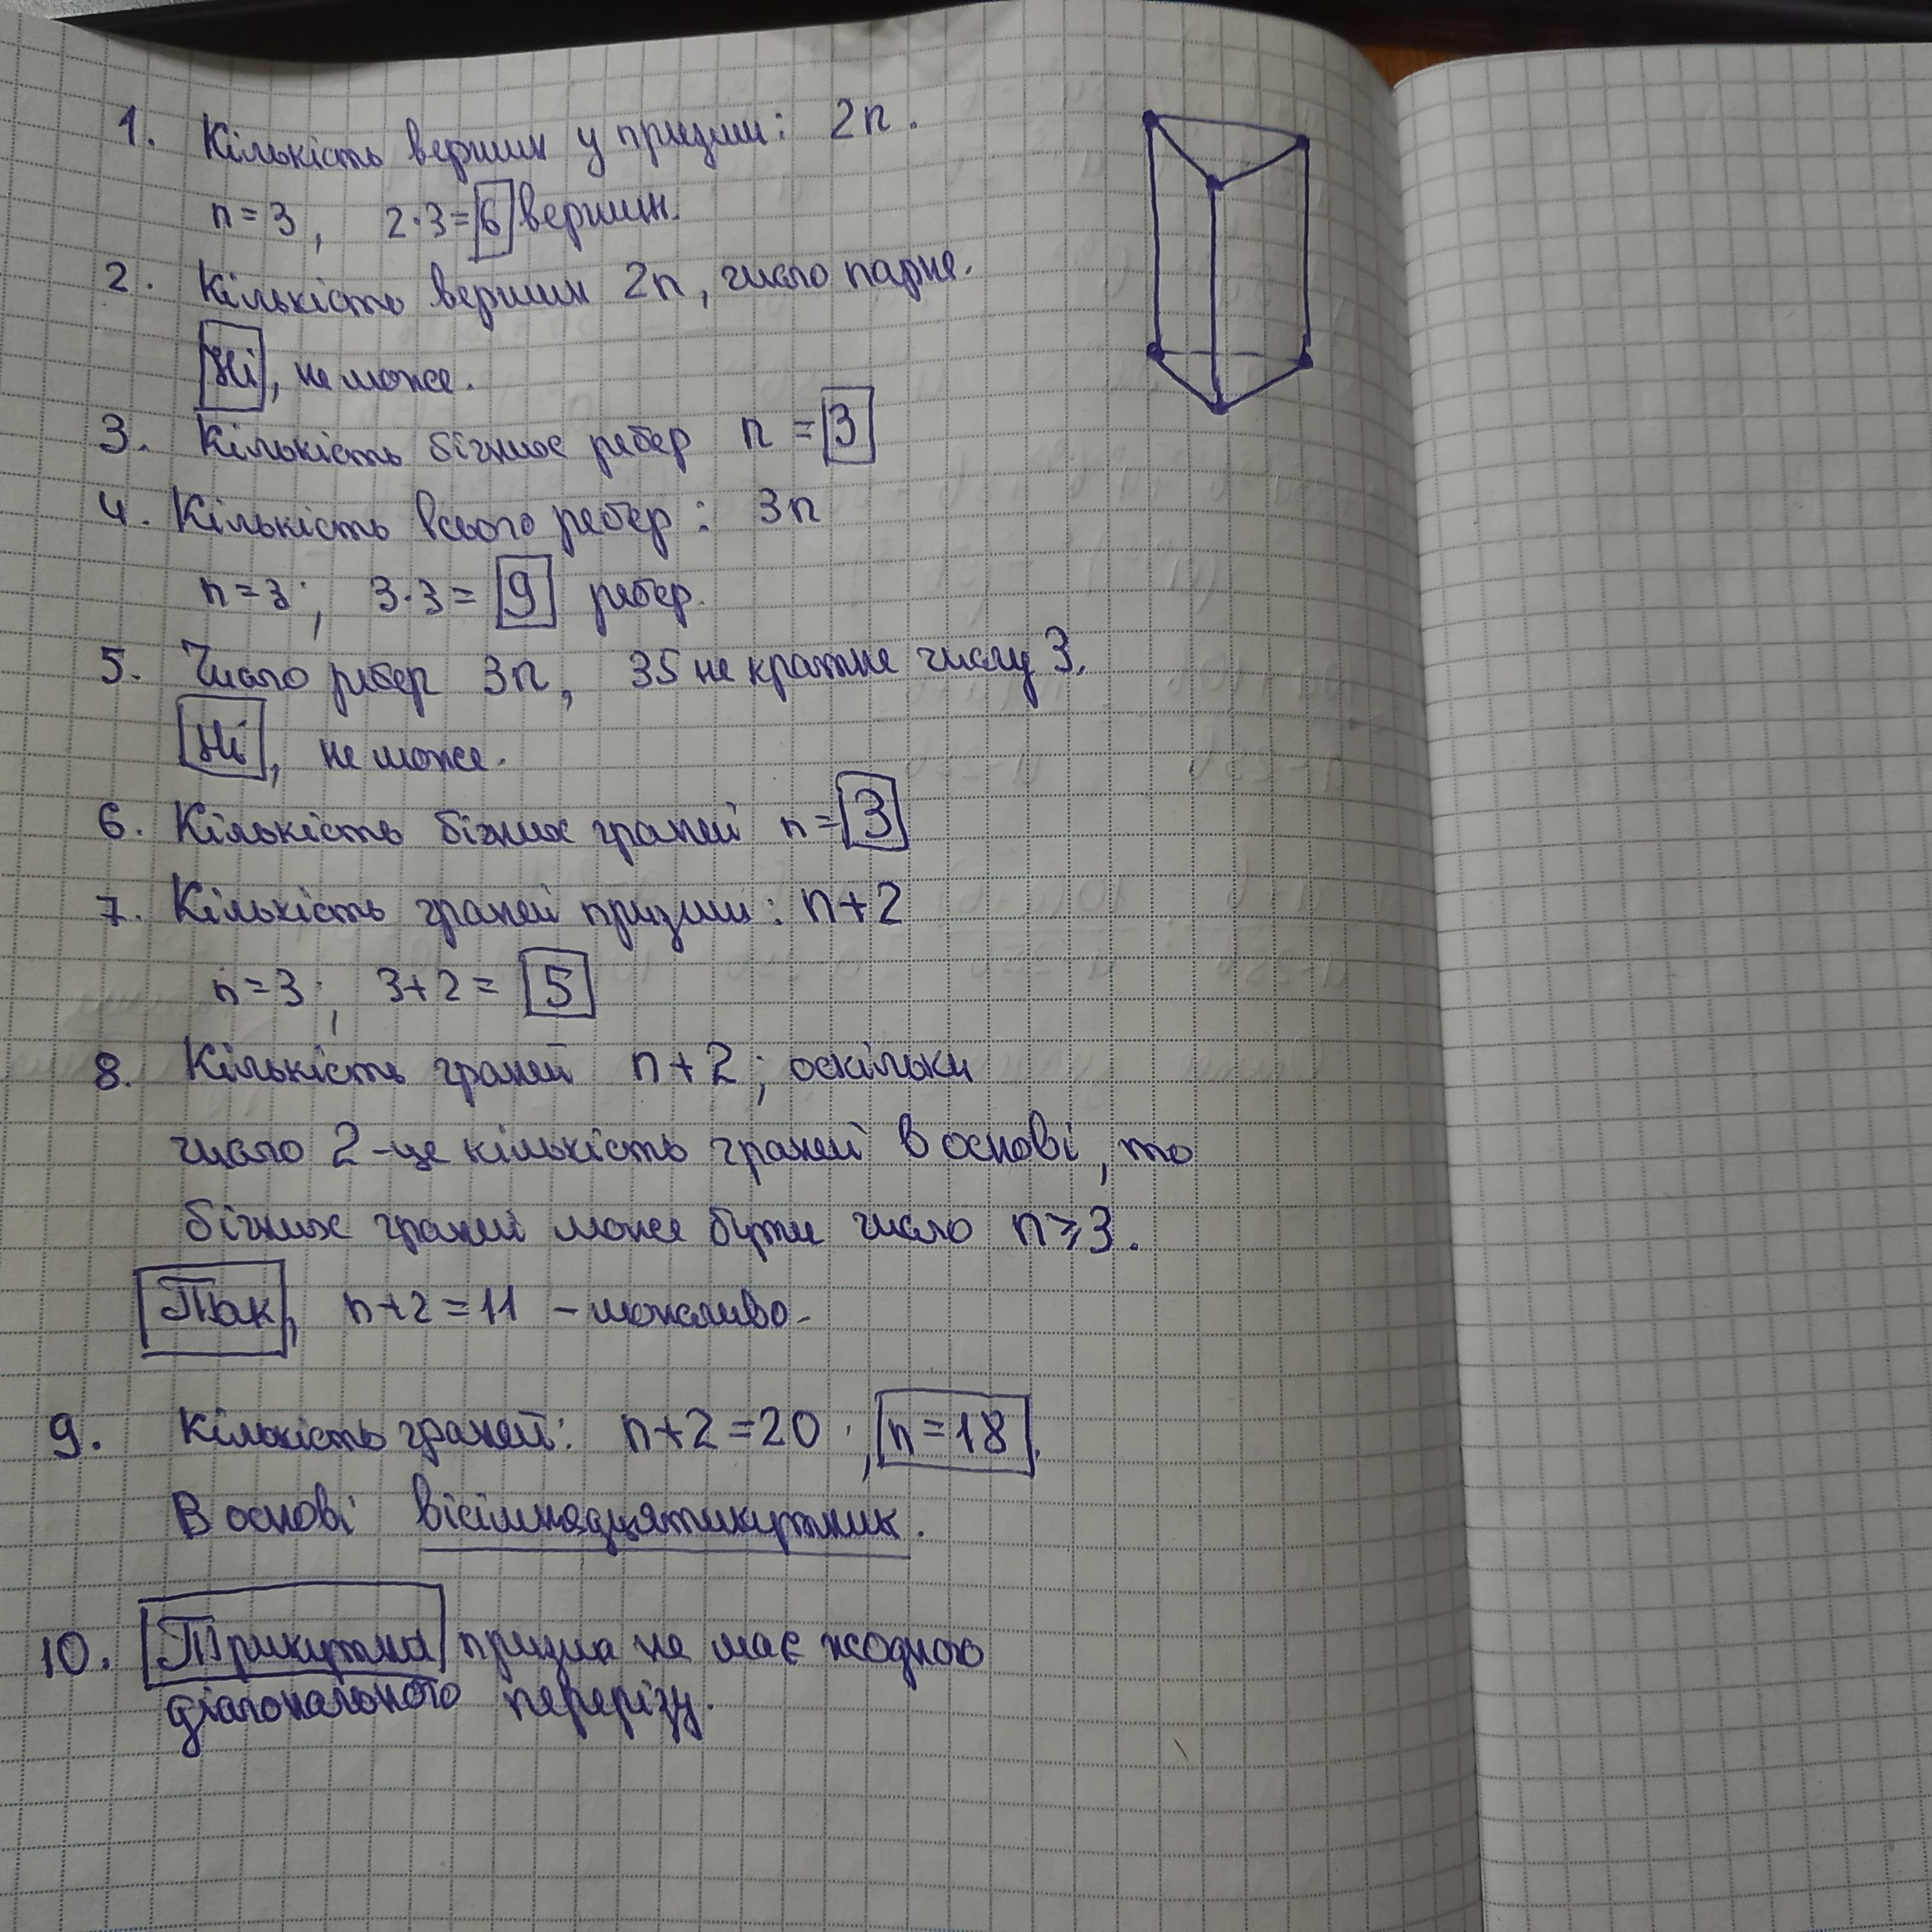 1. Кількість вершин у призми: 2n.
n=3, 2·3=6 вершин.
2. Кількість вершин 2n, число парне.
Ні, не може.
3. Кількість бічних ребер n = 3
4. Кількість всього ребер: 3n
n=3; 3·3= 9 ребер.
5. Число ребер 3n, 35 не кратне числу 3.
Ні, не може.
6. Кількість бічних граней n=3
7. Кількість граней призми: n+2
n=3; 3+2= 5
8. Кількість граней n+2; оскільки
число 2-це кількість граней в основі, то
бічних граней може бути число n⩾3.
Так, n+2=11 – можливо.
9. Кількість граней: n+2=20; n=18.
В основі вісімнадцятикутник.
10. Трикутна призма не має жодного
діагонального перерізу.